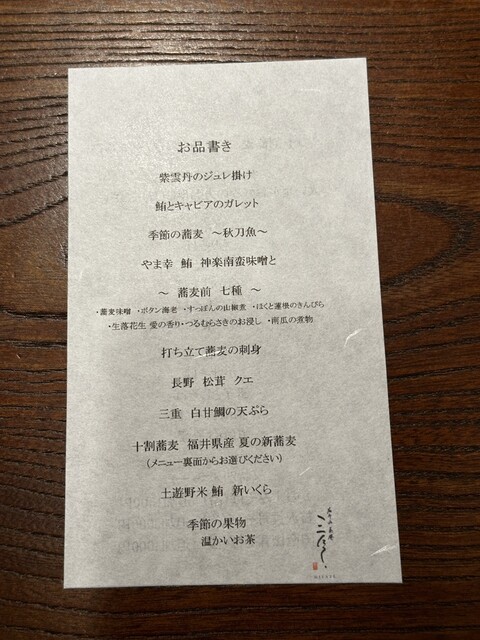 お品書き
紫雲丹のジュレ掛け
鮪とキャビアのガレット
季節の蕎麦 ～秋刀魚～
やま幸 鮪 神楽南蛮味噌と
～ 蕎麦前 七種 ～
・蕎麦味噌 ・ボタン海老 ・すっぽんの山椒煮 ・ほくと蓮根のきんぴら
・生落花生 愛の香り・つるむらさきのお浸し ・南瓜の煮物
打ち立て蕎麦の刺身
長野 松茸 クエ
三重 白甘鯛の天ぷら
十割蕎麦 福井県産 夏の新蕎麦
(メニュー裏面からお選びください)
土遊野米 鮪 新いくら
季節の果物
温かいお茶